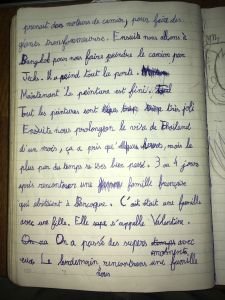 prenait des moteurs de camion, pour faire des
géants transformateurs. Ensuite nous allons à
Bangkok pour nous faire peindre le camion par
Jecks. Il a peind tout la porte.
Maintenant la peinture est fini.
Tout les peintures sont très joli
Ensuite nous prolongon le visa de Thailand
d'un mois, ça a pris quelques heures, mais le
plus par du temps se très bien passé. 3 ou 4 jours
après rencontrons une famille française
qui abitaient à Bangkok. C'ait était une famille
avec une fille. Elle s'appelle Valentine.
On a passé des supers avec
eux. Le lendemain rencontrons une famille